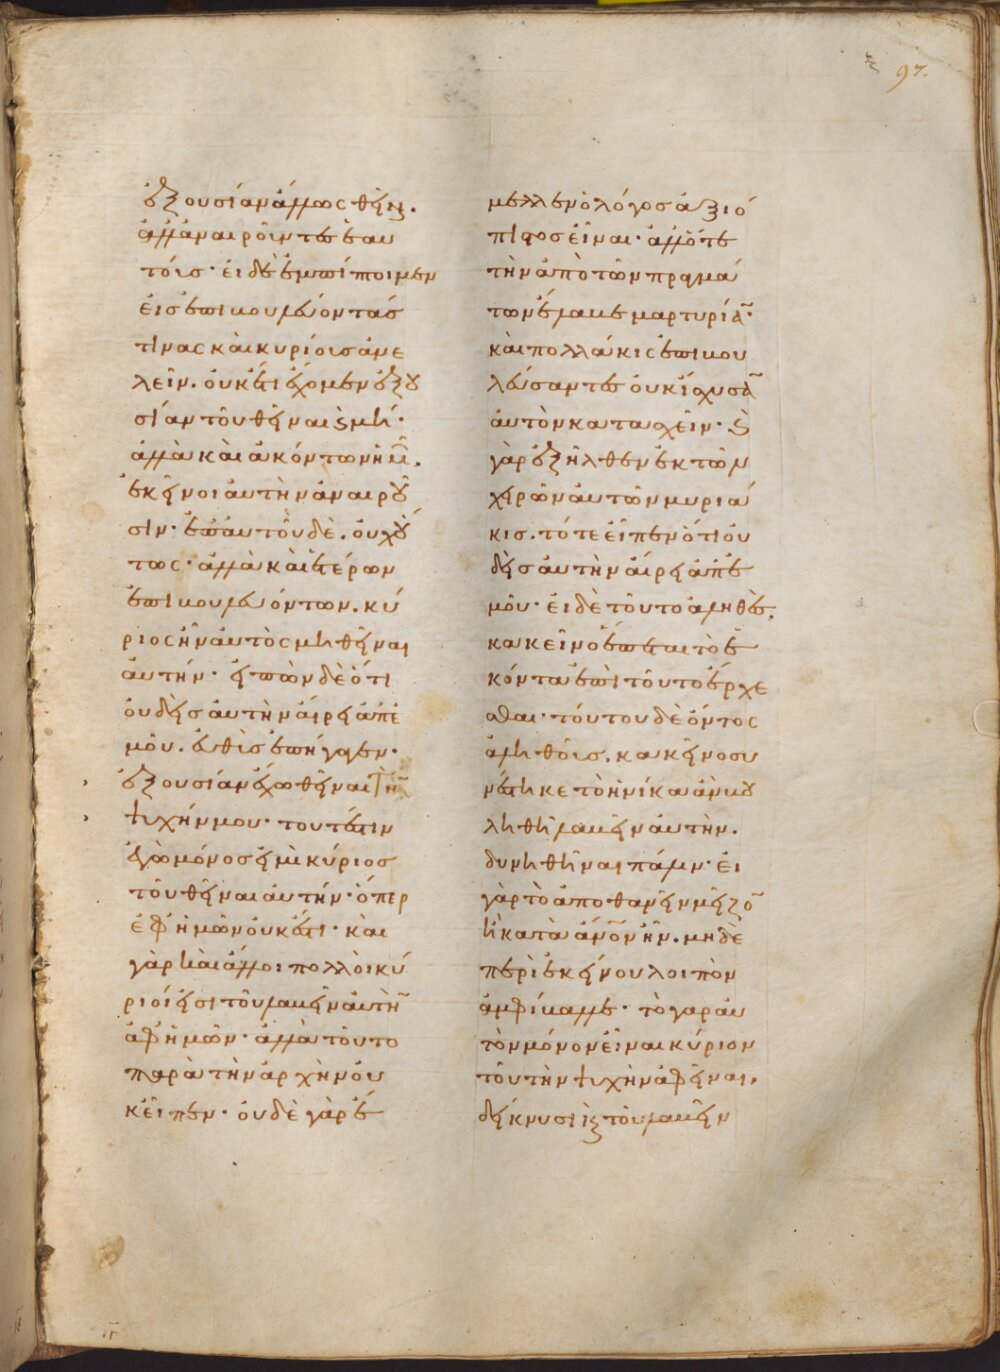 ἐξουσίαν ἄλλως θεῖναι.
ἀλλ' ἀναιροῦντες ἑαυ
τούς· εἰ δὲ ἐμπέσοιμεν
εἰς ἐπιβουλεύοντάς
τινας καὶ κυρίους ἀνε
λεῖν. οὐκέτι ἔχομεν ἐξου
σίαν τοῦ θεῖναι καὶ μή·
ἀλλὰ καὶ ἀκόντων ἡμῶν.
ἐκεῖνοι αὐτὴν ἀναιροῦ
σιν· ἐπ' αὐτοῦ δὲ. οὐχ οὕ
τως· ἀλλὰ καὶ ἑτέρων
ἐπιβουλευόντων. κύ
ριος ἦν αὐτὸς μὴ θεῖναι
αὐτήν· εἰπὼν δὲ ὅτι
οὐδεὶς αὐτὴν αἴρει ἀπ' ἐ
μοῦ. εὐθὺς ἐπήγαγεν·
ἐξουσίαν ἔχω θεῖναι τὴν
ψυχήν μου· τουτέστιν
ἐγὼ μόνος εἰμὶ κύριος
τοῦ θεῖναι αὐτήν· ὅπερ
ἐφ' ἡμῶν οὐκ ἔστι· καὶ
γὰρ καὶ ἄλλοι πολλοὶ κύ
ριοί εἰσι τοῦ λαβεῖν αὐτὴν
ἀφ' ἡμῶν· ἀλλὰ τοῦτο
παρὰ τὴν ἀρχὴν οὐ
κ εἶπεν· οὐδὲ γὰρ ἔ
97.
μελλεν ὁ λόγος ἀξιό
πιστος εἶναι· ἀλλ' ὅτε
τὴν ἀπὸ τῶν πραγμά
των ἔλαβε μαρτυρίαν·
καὶ πολλάκις ἐπιβου
λεύσαντες οὐκ ἴσχυσαν
αὐτὸν κατασχεῖν· καὶ
γὰρ ἐξῆλθεν ἐκ τῶν
χειρῶν αὐτῶν μυριά
κις. τότε εἶπεν ὅτι οὐ
δεὶς αὐτὴν αἴρει ἀπ' ἐ
μοῦ· εἰ δὲ τοῦτο ἀληθὲς.
κἀκεῖνο ἕπεται τὸ ἑ
κόντα ἐπὶ τοῦτο ἔρχε
σθαι· τούτου δὲ ὄντος
ἀληθοῦς. κἀκεῖνο συ
νέστηκε τὸ ἡνίκα ἂν βου
ληθῇ λαβεῖν αὐτὴν.
δυνηθῆναι πάλιν· εἰ
γὰρ τὸ ἀποθανεῖν μεῖζον
ἢ κατὰ ἄνον ἦν. μηδὲ
περὶ ἐκείνου λοιπὸν
ἀμφίβαλλε· τὸ γὰρ αὐ
τὸν μόνον εἶναι κύριον
τοῦ τὴν ψυχὴν ἀφεῖναι.
δείκνυσι καὶ τοῦ λαβεῖν